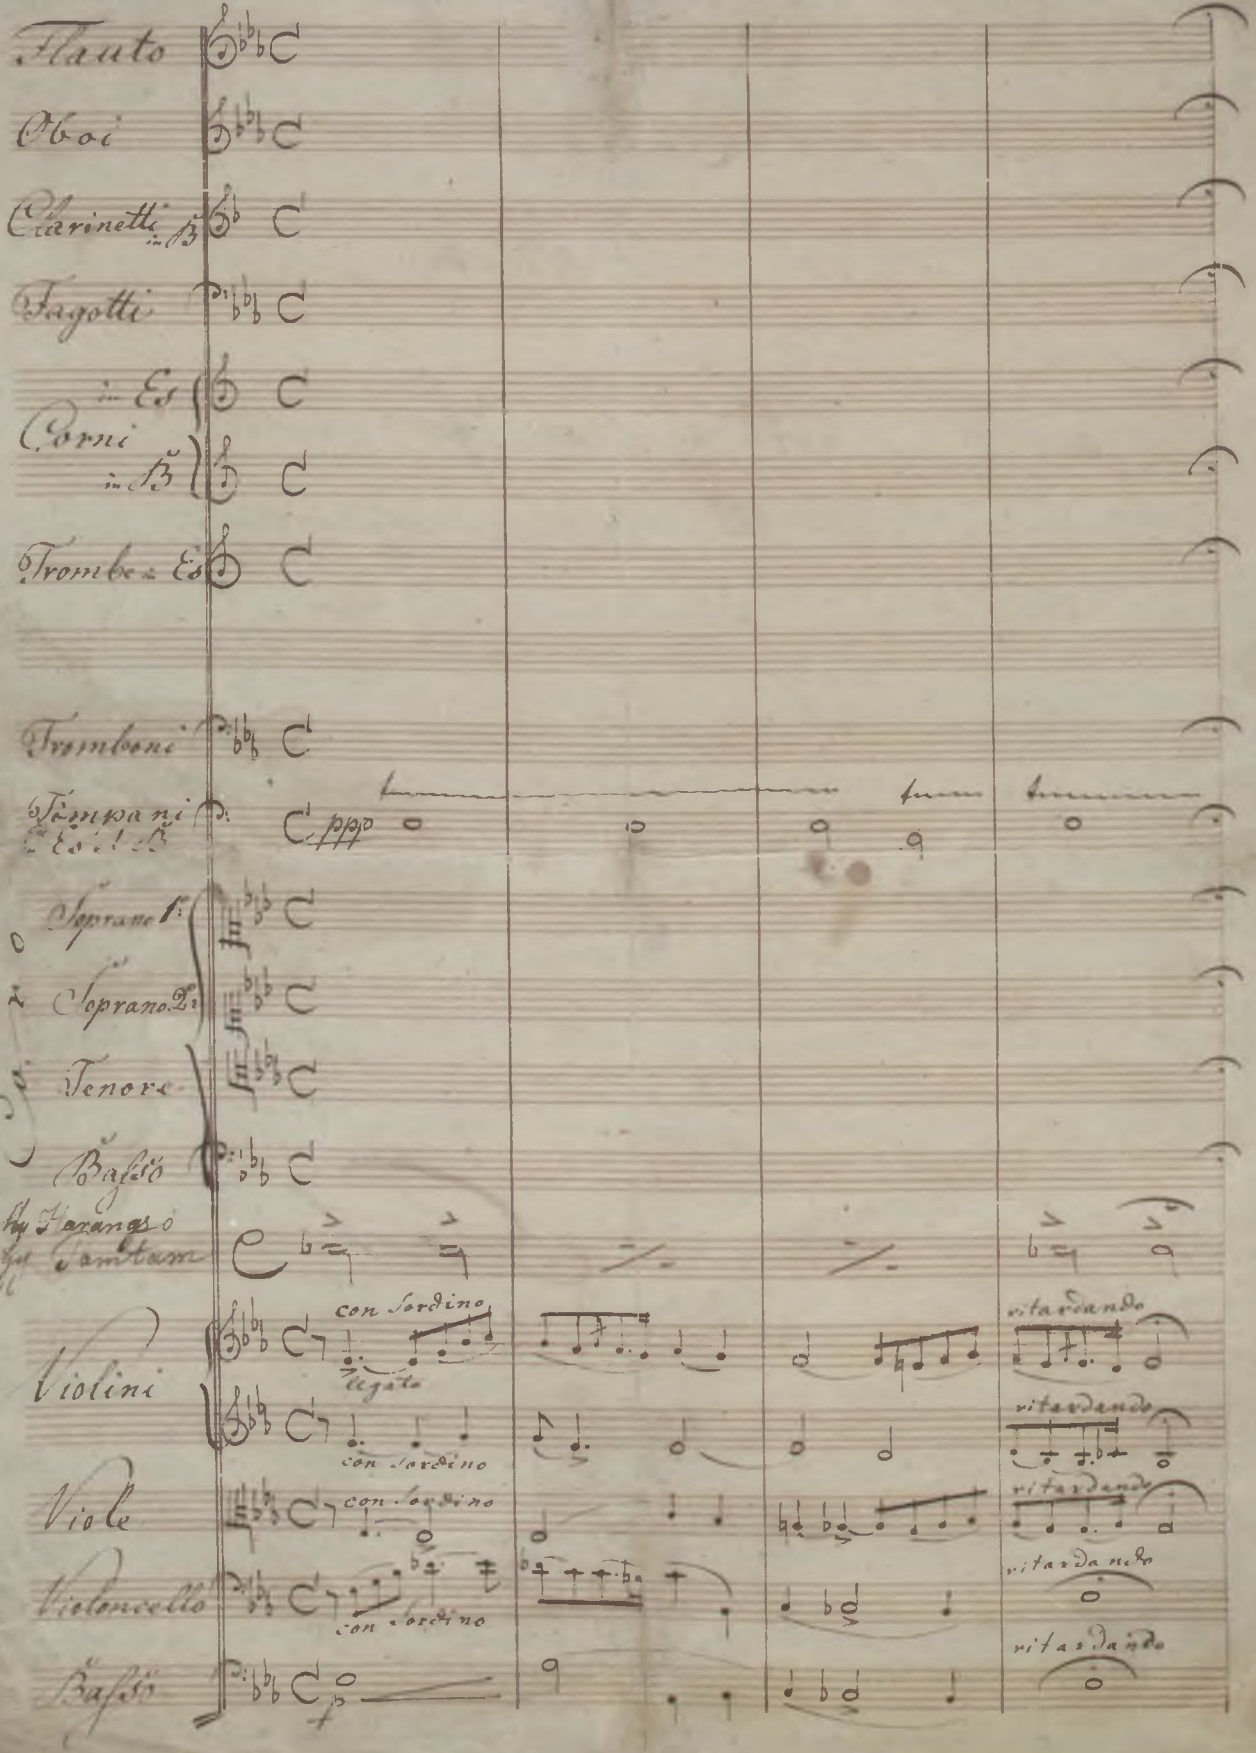 Flauto
Oboi
Clarinetti in B
Fagotti
in Es
Corni
in B
Trombe in Es
Tromboni
Timpani
Es B
ppp
Soprano 1º
Soprano 2º
Tenore
Baſsö
Harangsó
Tamtam
Violini
con Sordino
legato
ritardando
con Sordino
ritardando
Viole
con Sordino
ritardando
Violoncello
con Sordino
ritardando
Baſsö
ritardando